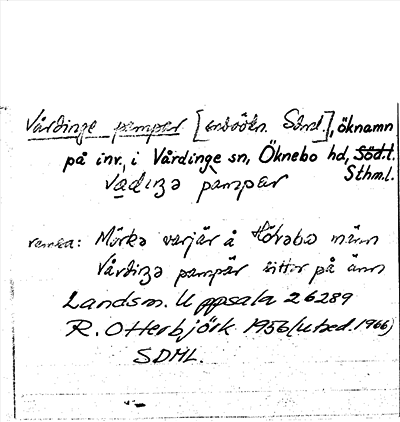 Vårdinge pampar [ ], öknamn
på inv. i Vårdinge sn, Öknebo hd, Söd.t.
Sthm.l.
pampar
ramsa: Mörkə varjär å Hövəbə männ
Vårdinge pampär sittor på änn
Landsm. Uppsala 26289
R. Otterbjörk 1956 (utred. 1966)
SDHL.